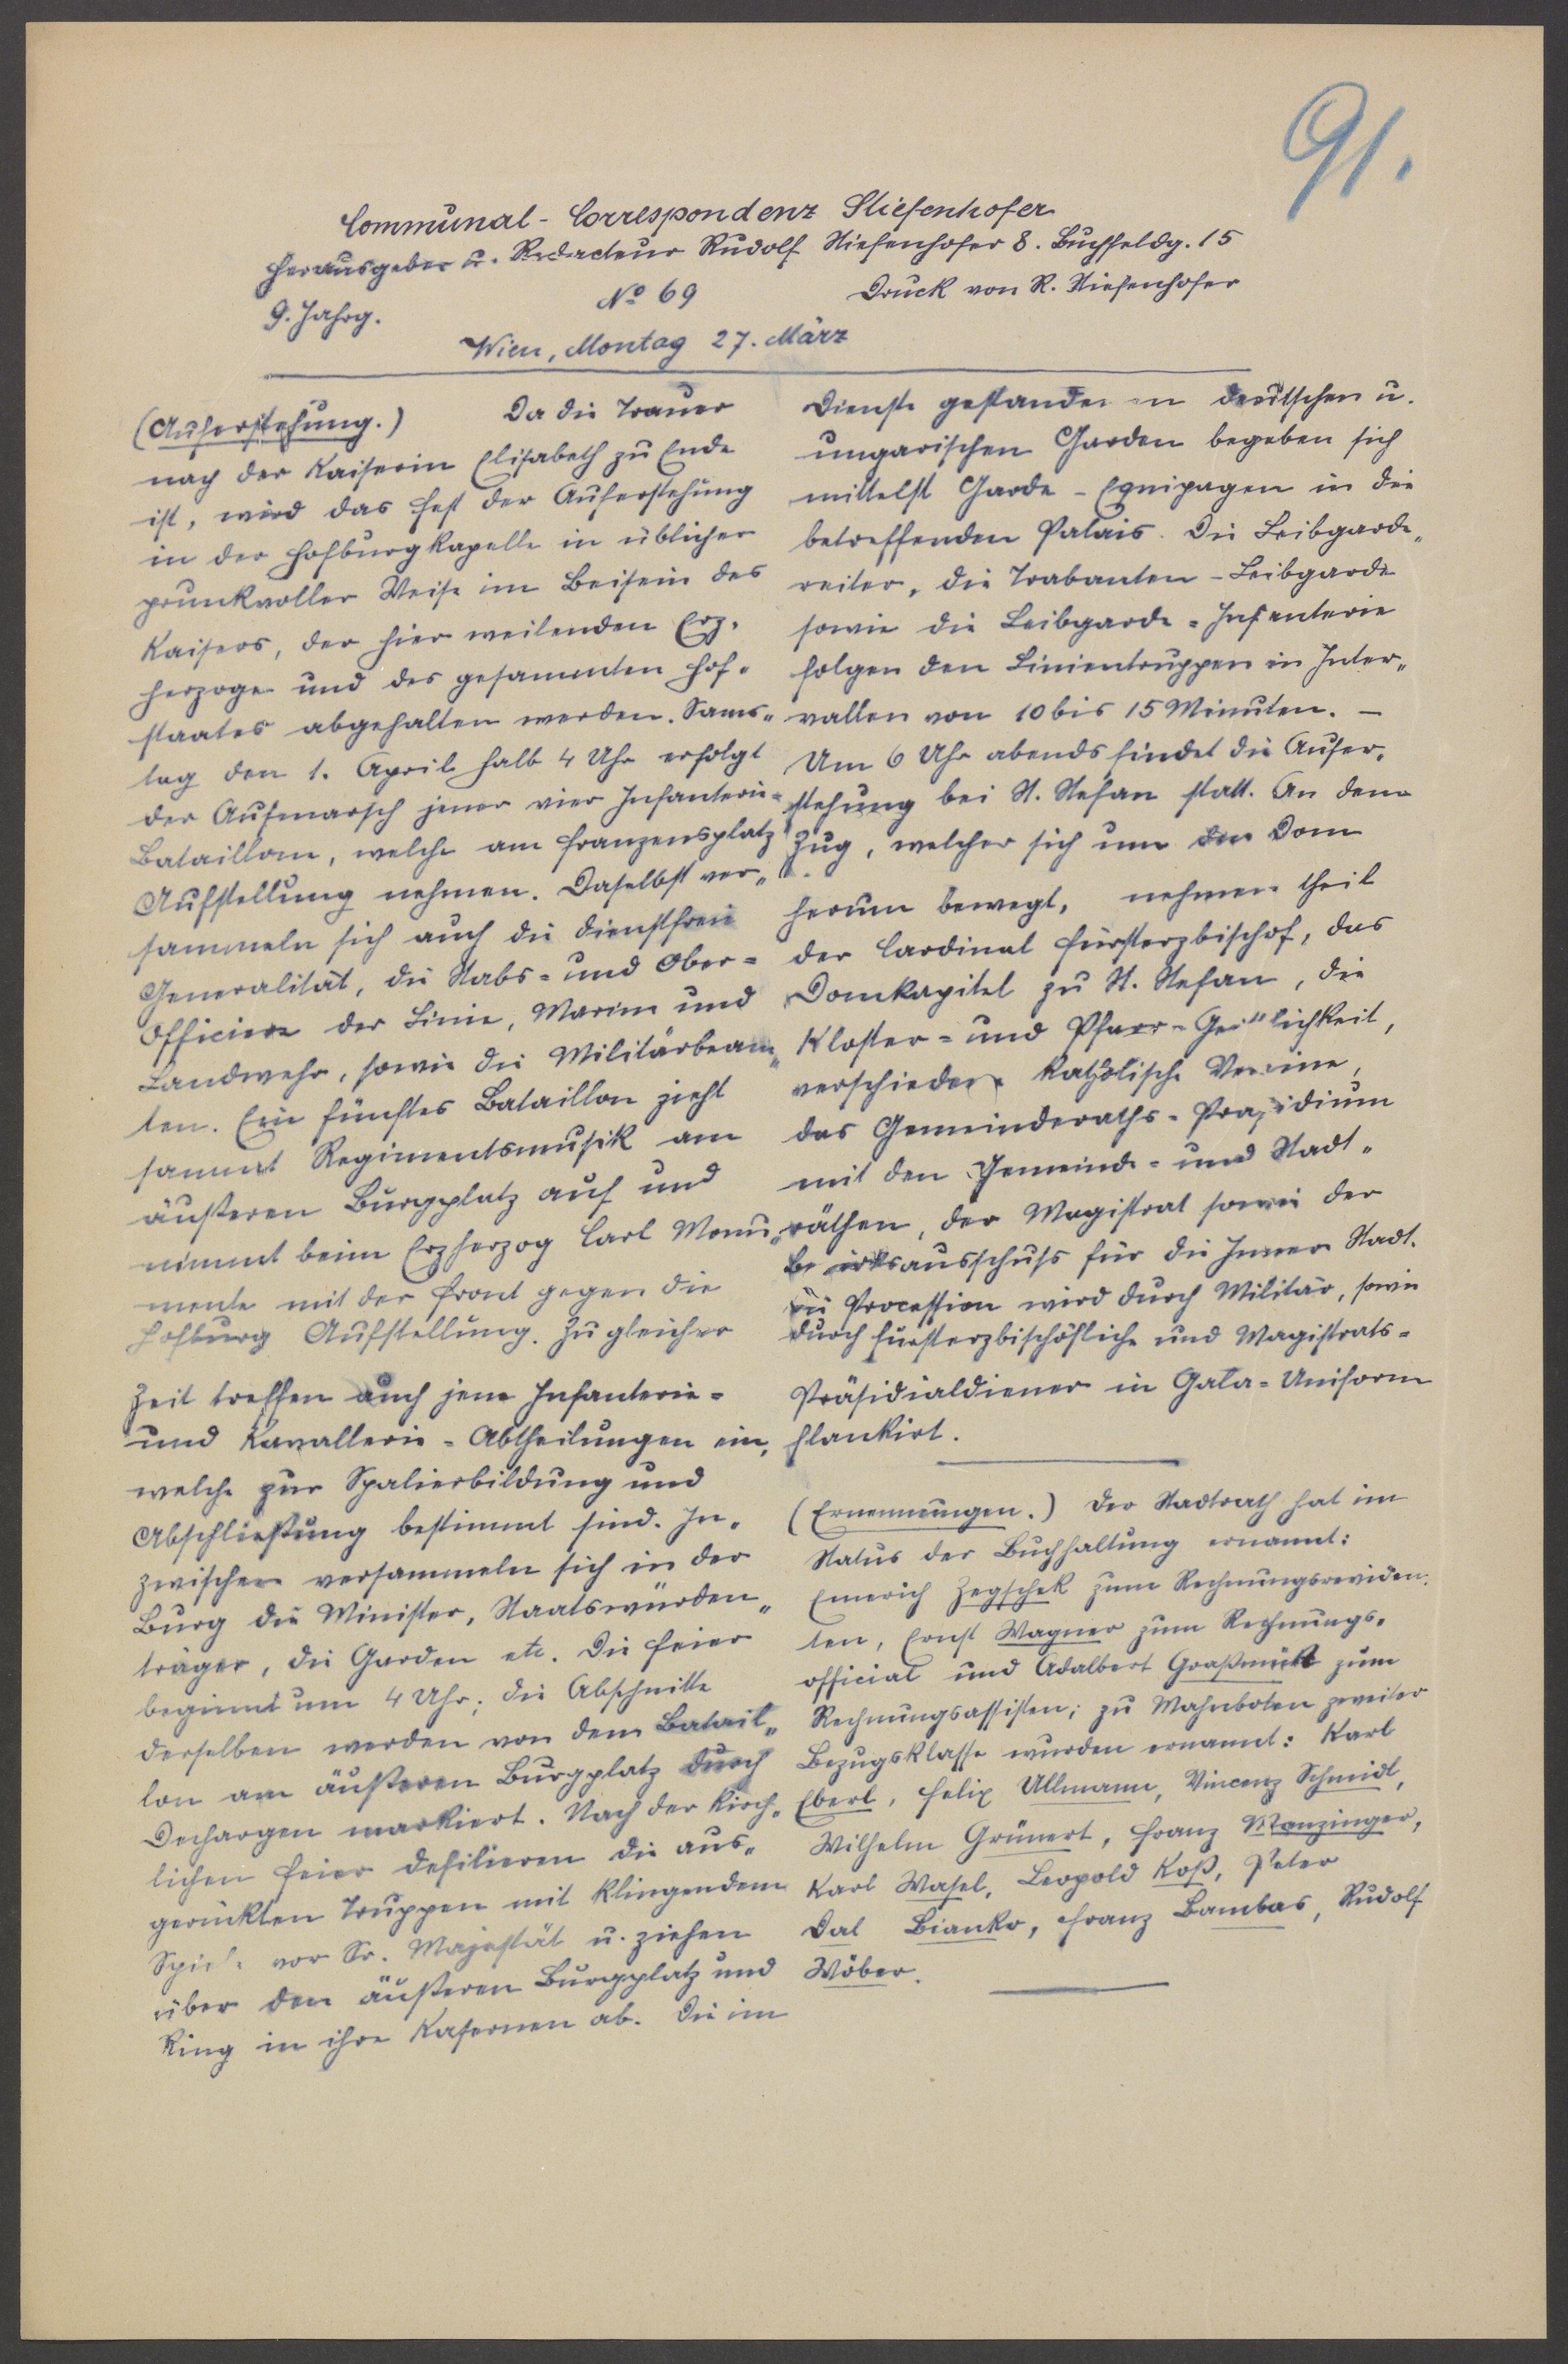 91.
Communal-Correspondenz Stiefenhofer
Herausgeber u. Redacteur Rudolf Stiefenhofer 8. Buchfeldg. 15
9. Jahrg.
No 69
Druck von R. Stiefenhofer
Wien, Montag 27. März
(Auferstehung.) Da die Trauer
nach der Kaiserin Elisabeth zu Ende
ist, wird das Fest der Auferstehung
in der Hofburgkapelle in üblicher
prunkvoller Weise im Beisein des
Kaisers, der hier weilenden Erz-
herzoge und des gesammten Hof-
staates abgehalten werden. Sams-
tag den 1. April halb 4 Uhr erfolgt
der Aufmarsch jener vier Infanterie-
Bataillone, welche am Franzensplatz
Aufstellung nehmen. Daselbst ver-
sammeln sich auch die dienstfreie
Generalität, die Stabs- und Ober-
Officiere der Linie, Marine und
Landwehr, sowie die Militärbeam-
ten. Ein fünftes Bataillon zieht
sammt Regimentsmusik am
äußeren Burgplatz auf und
nimmt beim Erzherzog Carl Monu-
mente mit der Front gegen die
Hofburg Aufstellung. Zu gleicher
Zeit treffen auch jene Infanterie-
und Kavallerie-Abtheilungen ein,
welche zur Spalierbildung und
Abschließung bestimmt sind. In-
zwischen versammeln sich in der
Burg die Minister, Staatswürden-
träger, die Garden etc. Die Feier
beginnt um 4 Uhr; die Abschnitte
derselben werden von dem Batail-
lon am äußeren Burgplatz durch
Dechargen markiert. Nach der kirch-
lichen Feier defilieren die aus-
gerückten Truppen mit klingendem
Spiele vor Sr. Majestät u. ziehen
über den äußeren Burgplatz und
Ring in ihre Kasernen ab. Die im
Dienste gestandenen deutschen u.
ungarischen Garden begeben sich
mittelst Garde-Equipagen in die
betreffenden Palais. Die Leibgarde-
reiter, die Trabanten-Leibgarde
sowie die Leibgarde-Infanterie
folgen den Linientruppen in Inter-
vallen von 10 bis 15 Minuten. –
Um 6 Uhr abends findet die Aufer-
stehung bei St. Stefan statt. An dem
Zug, welcher sich um den Dom
herum bewegt, nehmen theil
der Cardinal Fürsterzbischof, das
Domkapitel zu St. Stefan, die
Kloster- und Pfarr-Geistlichkeit,
verschiedene katholische Vereine,
das Gemeinderaths-Präsidium
mit den Gemeinde- und Stadt-
räthen, der Magistrat sowie der
Bezirksausschuss für die Innere Stadt.
Die Procession wird durch Militär, sowie
durch fürsterzbischöfliche und Magistrats-
Präsidialdiener in Gala-Uniform
flankirt.
(Ernennungen.) Der Stadtrath hat im
Status der Buchhaltung ernannt:
Emerich Zegschek zum Rechnungsreviden-
ten, Ernst Wagner zum Rechnungs-
official und Adalbert zum
Rechnungsassisten; zu Mahnboten zweiter
Bezugsklasse wurden ernannt: Karl
Eberl, Felix Ullmann, Vincenz Schmidt,
Wilhelm Grünert, Franz Manzinger,
Karl Wasel, Leopold Koß, Peter
Dal Bianko, Franz Bambas, Rudolf
Wöber.